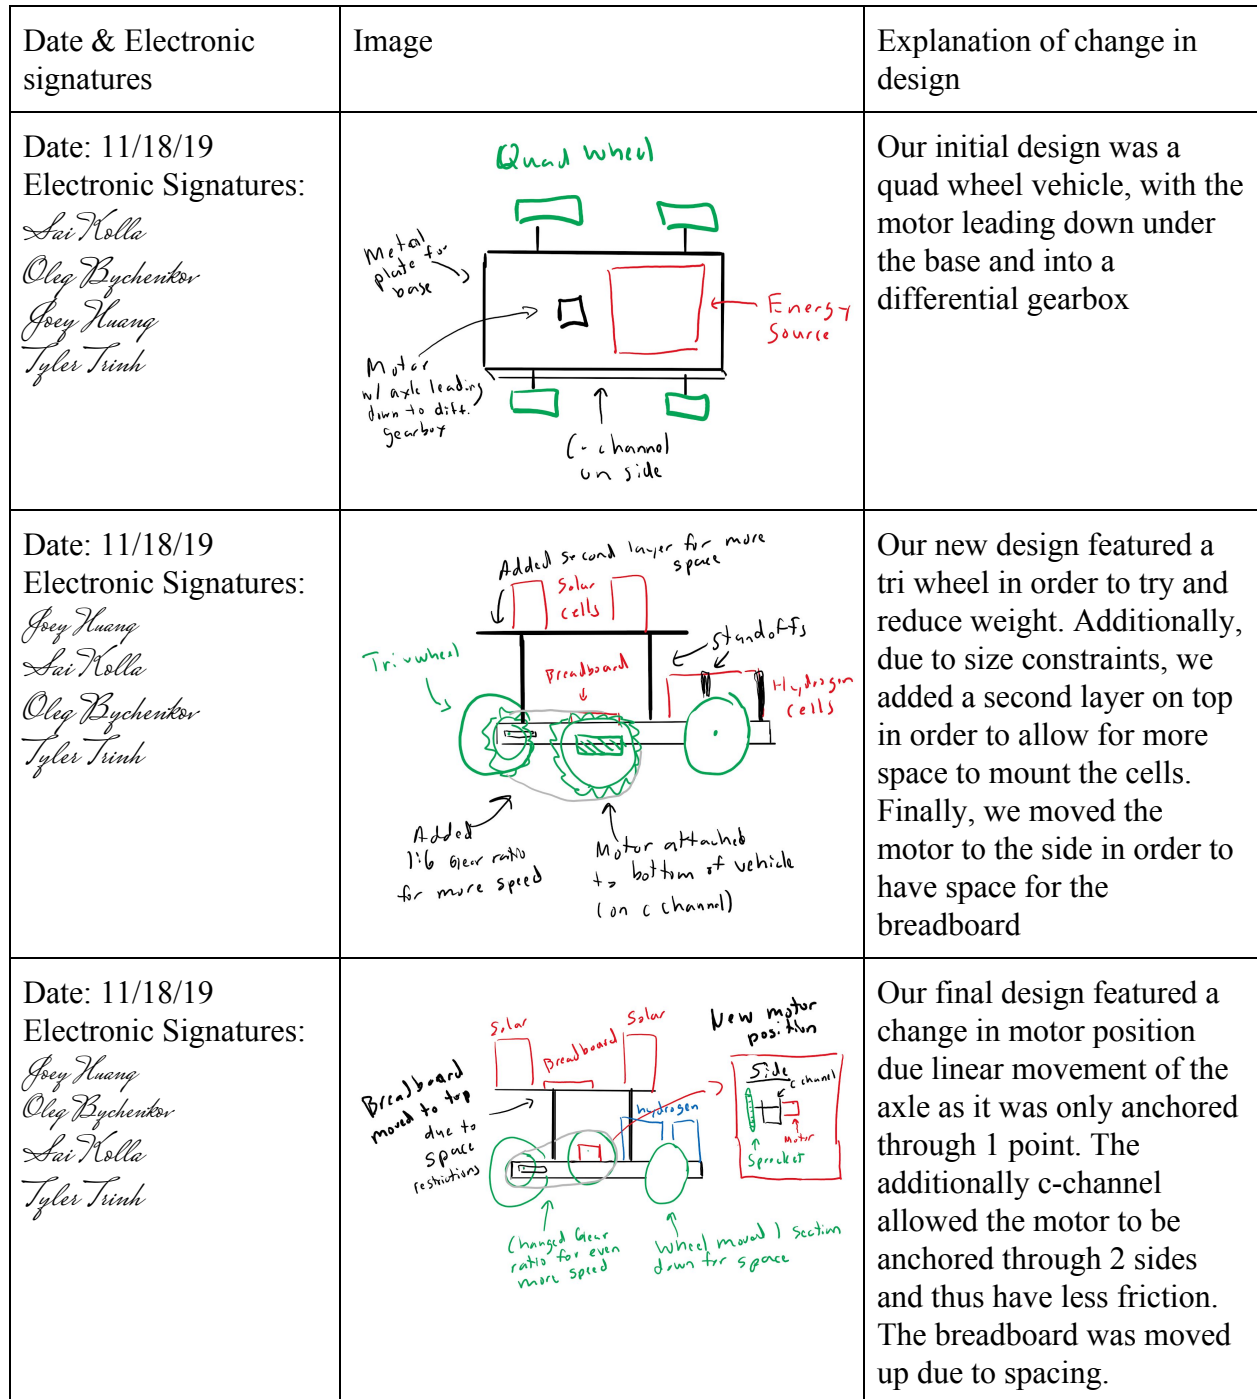 Date & Electronic
signatures
Image
Explanation of change in
design
Date: 11/18/19
Electronic Signatures:
Sai Kolla
Oleg Bychenkov
Joey Huang
Tyler Trinh
Quad wheel
Metal
plate for
base
Energy
Source
Motor
w/ axle leading
down to diff.
gearbox
C-channel
on side
Our initial design was a
quad wheel vehicle, with the
motor leading down under
the base and into a
differential gearbox
Date: 11/18/19
Electronic Signatures:
Joey Huang
Sai Kolla
Oleg Bychenkov
Tyler Trinh
Added second layer for more
space
Solar
cells
Tri-wheel
Breadboard
standoffs
Hydrogen
cells
Added
1:6 Gear ratio
for more speed
Motor attached
to bottom of vehicle
(on c channel)
Our new design featured a
tri wheel in order to try and
reduce weight. Additionally,
due to size constraints, we
added a second layer on top
in order to allow for more
space to mount the cells.
Finally, we moved the
motor to the side in order to
have space for the
breadboard
Date: 11/18/19
Electronic Signatures:
Joey Huang
Oleg Bychenkov
Sai Kolla
Tyler Trinh
Solar
Breadboard
Solar
New motor
position
Breadboard
moved to top
due to
space
restrictions
hydrogen
Side
c channel
Motor
Sprocket
Changed Gear
ratio for even
more speed
Wheel moved 1 section
down for space
Our final design featured a
change in motor position
due linear movement of the
axle as it was only anchored
through 1 point. The
additionally c-channel
allowed the motor to be
anchored through 2 sides
and thus have less friction.
The breadboard was moved
up due to spacing.